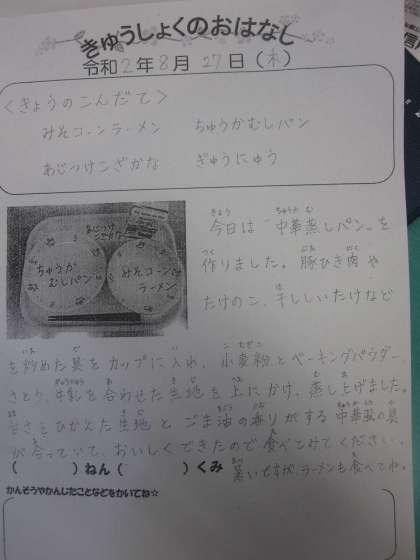 きゅうしょくのおはなし
令和2年8月27日(木)
<きょうのこんだて>
みそコーンラーメン ちゅうかむしパン
あじつけこざかな ぎゅうにゅう
あじつけ
こざかな
ちゅうか
むしパン
みそコーン
ラーメン
今日は"中華蒸しパン"を
作りました。豚ひき肉や
たけのこ、干ししいたけなど
を炒めた具をカップに入れ、小麦粉とベーキングパウダー、
さとう、牛乳を合わせた生地を上にかけ、蒸し上げました。
甘さをひかえた生地とごま油の香りがする中華風の具
が合っていて、おいしくできたので食べてみてください。
( )ねん( )くみ 暑いですが、ラーメンも食べてね。
かんそうやかんじたことなどをかいてね☆